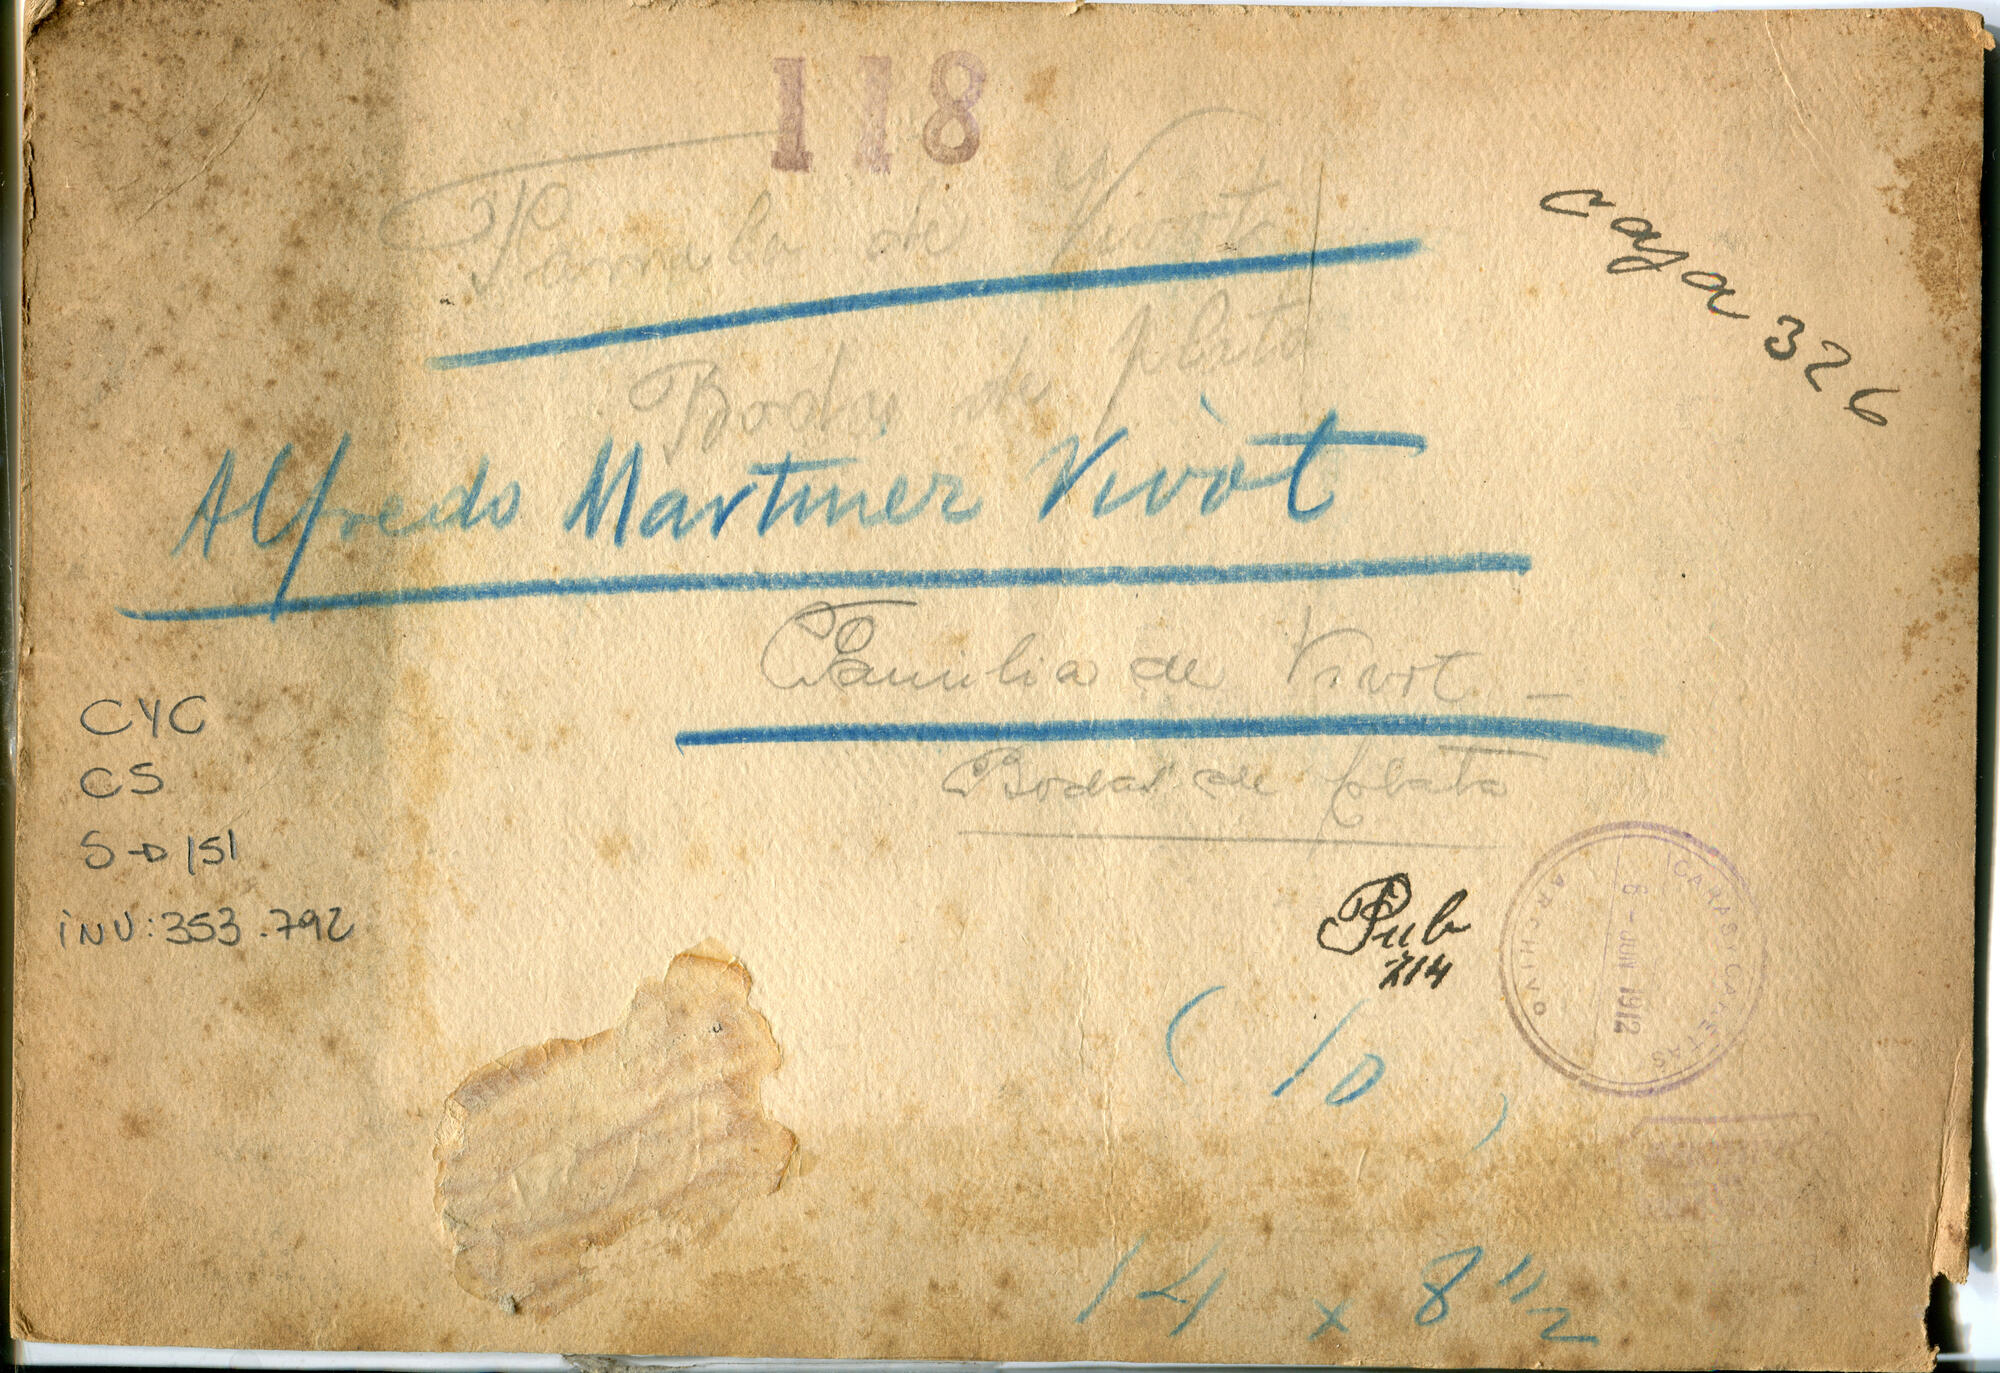 118
Familia de Vivot
Bodas de plata
Caja 326
Alfredo Martinez Vivot
Familia de Vivot –
Bodas de plata
CYC
CS
S-D/51
iNV: 353.792
Pub
714
CARAS Y CARETAS
6 - JUN 1912
ARCHIVO
( 10 )
14 x 8 1/2